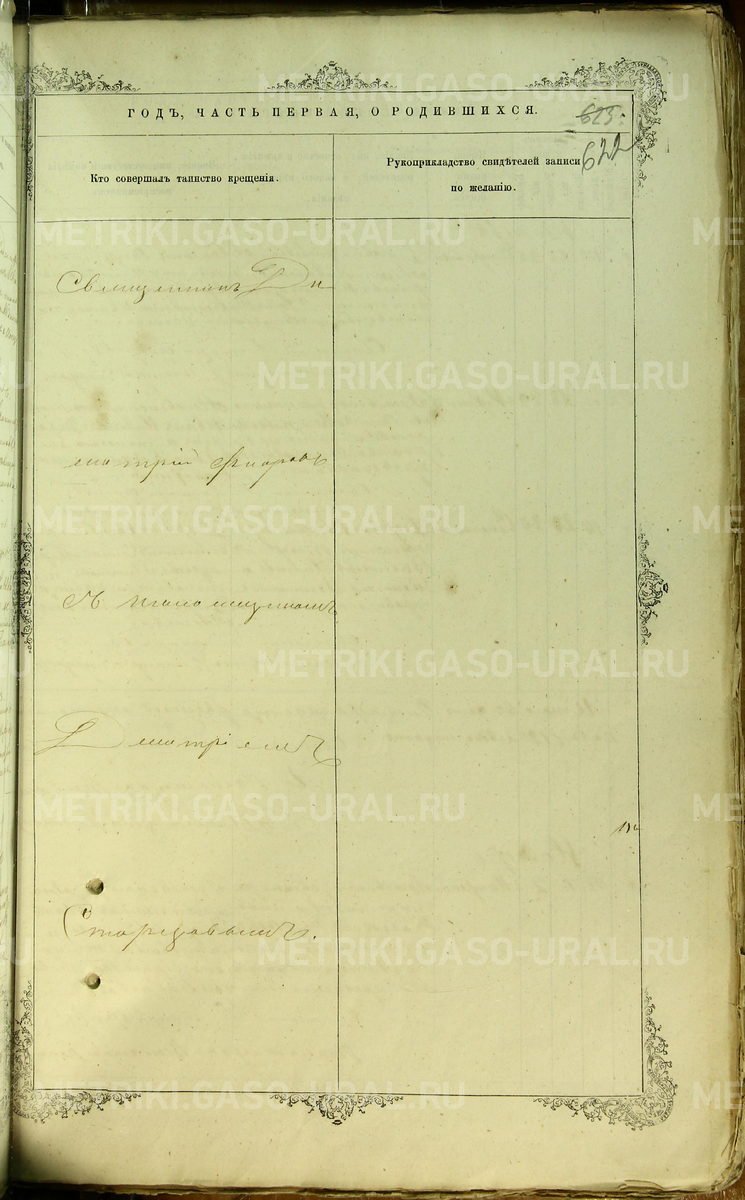 ГОДЪ, ЧАСТЬ ПЕРВАЯ, О РОДИВШИХСЯ.
625.
622
Кто совершалъ таинство крещенія.
Рукоприкладство свидѣтелей записи
по желанію.
Священникъ Ди
митрій
съ псаломщикомъ
Димитріемъ
METRIKI.GASO-URAL.RU